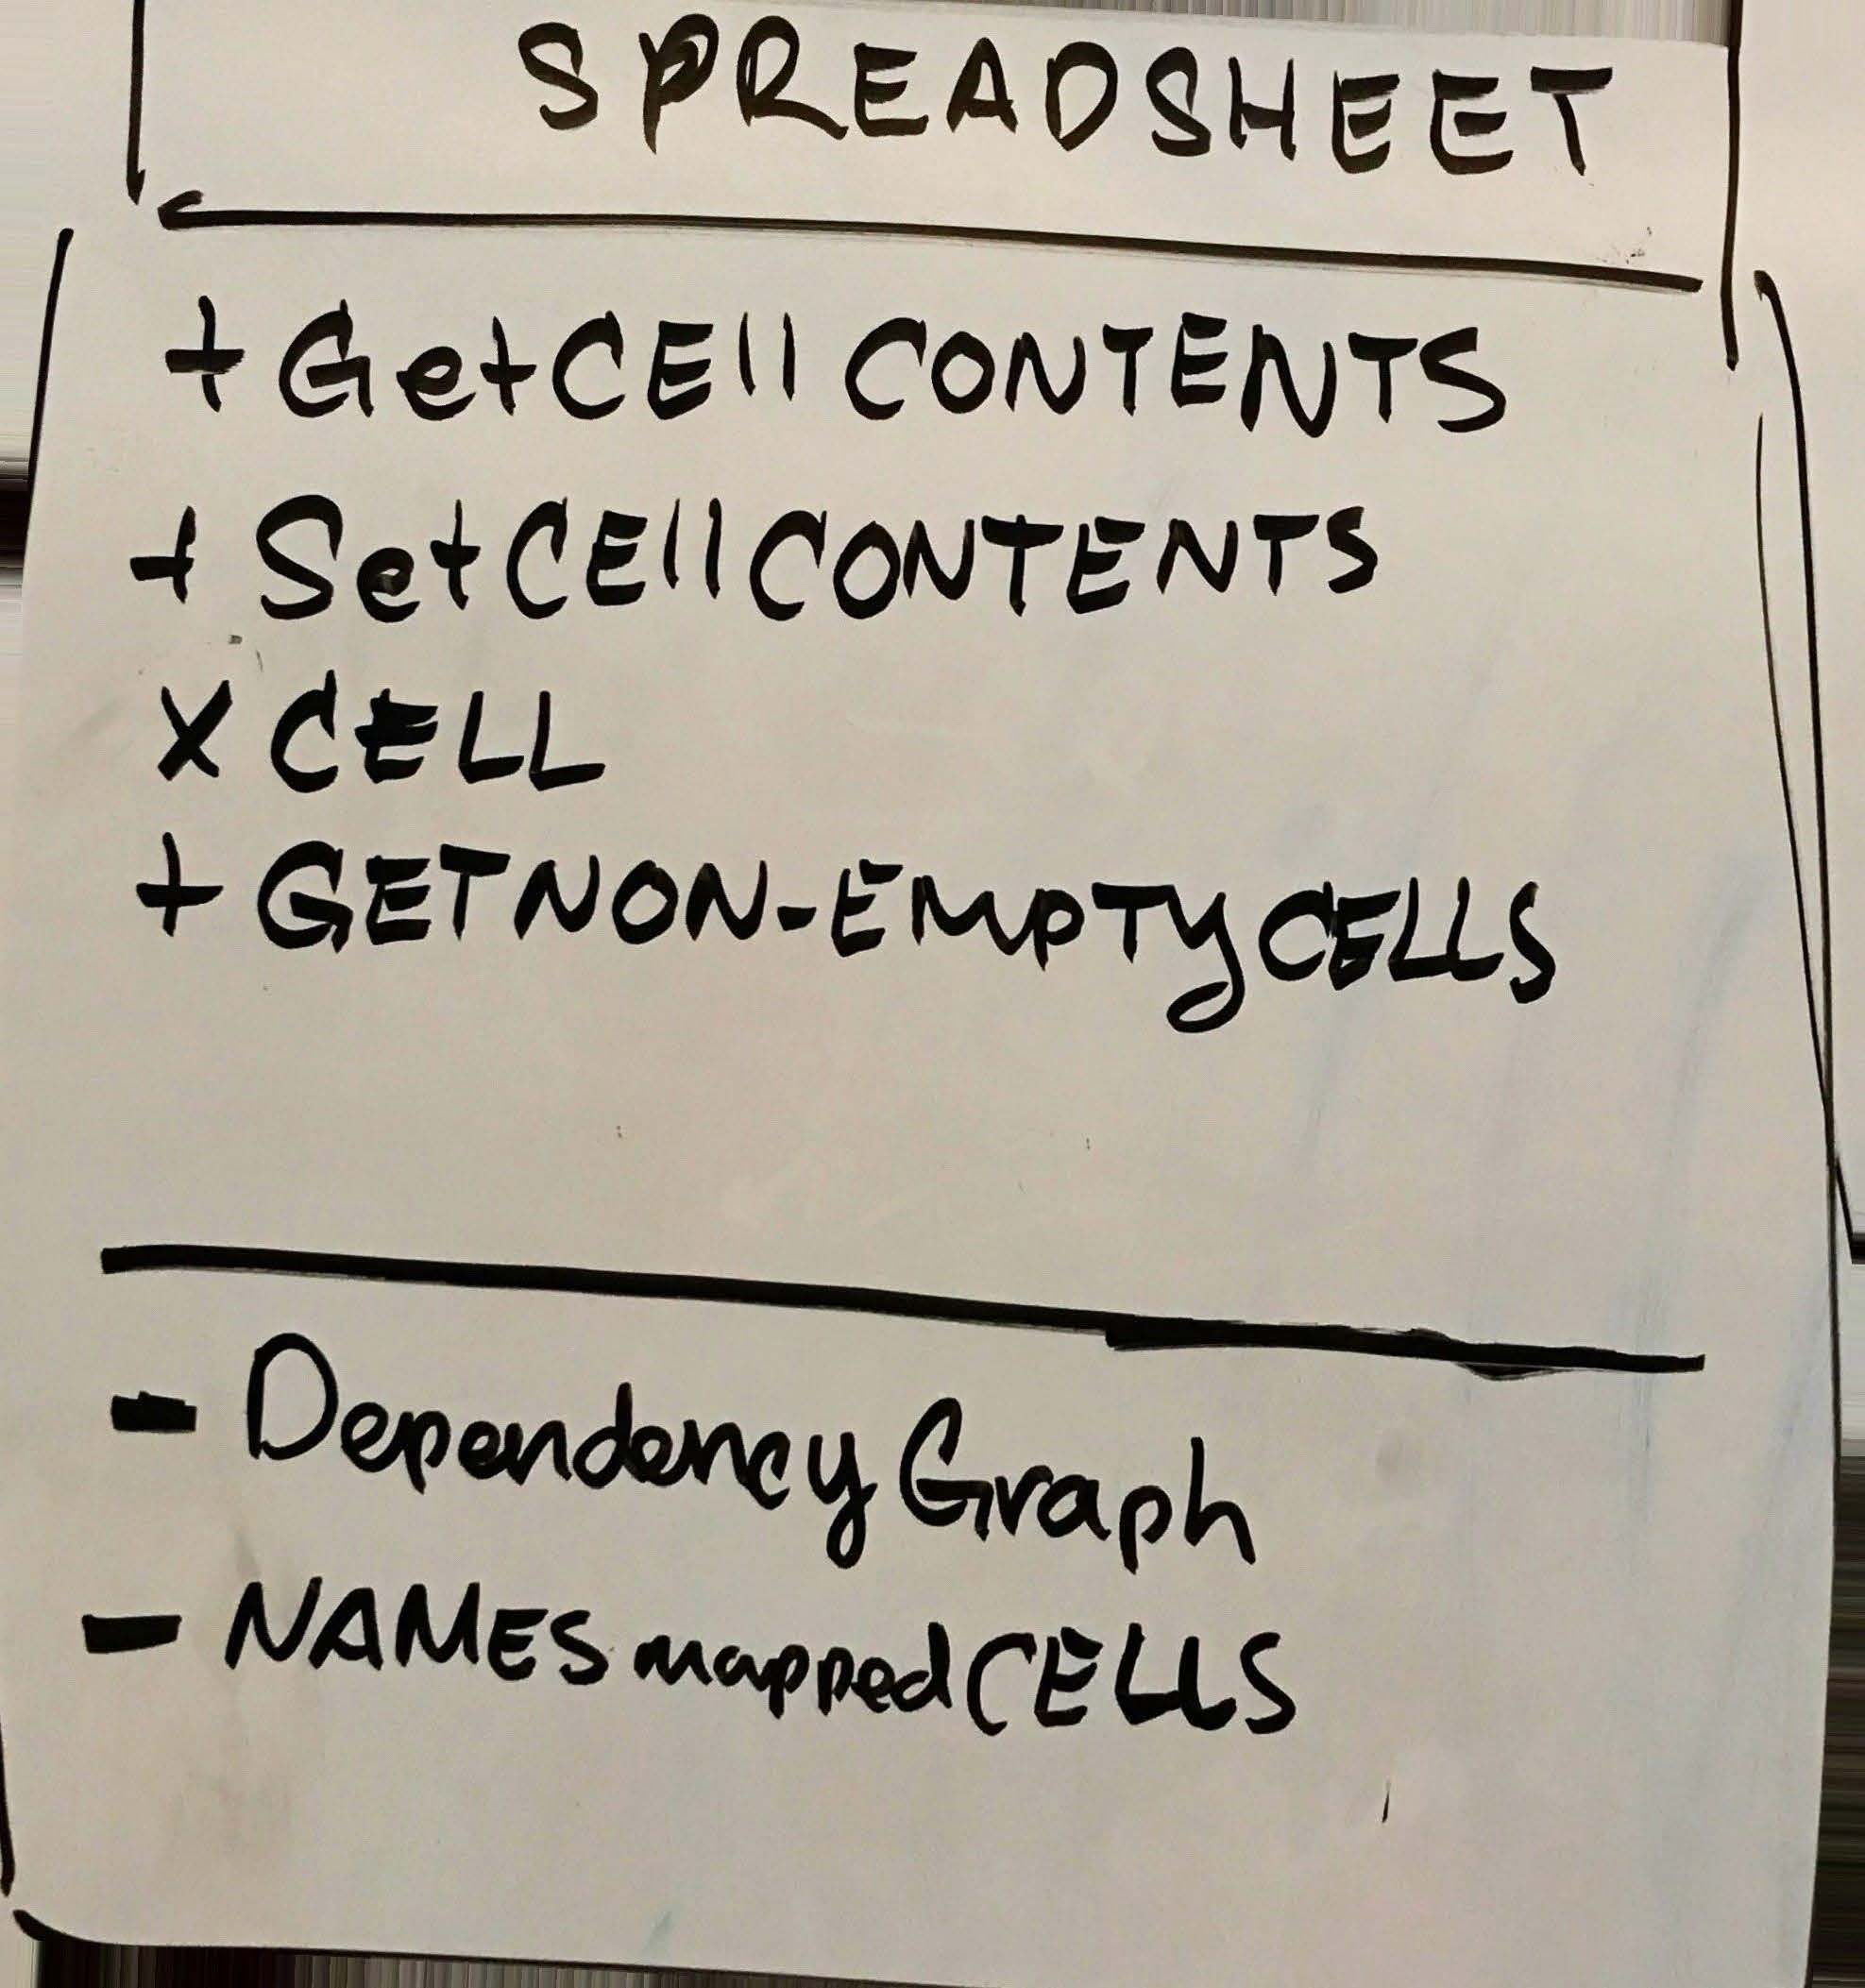 SPREADSHEET
+ GetCEll CONTENTS
+ SetCEllCONTENTS
X CELL
+ GETNON-EMPTyCELLS
- DependencyGraph
- NAMESmappedCELLS